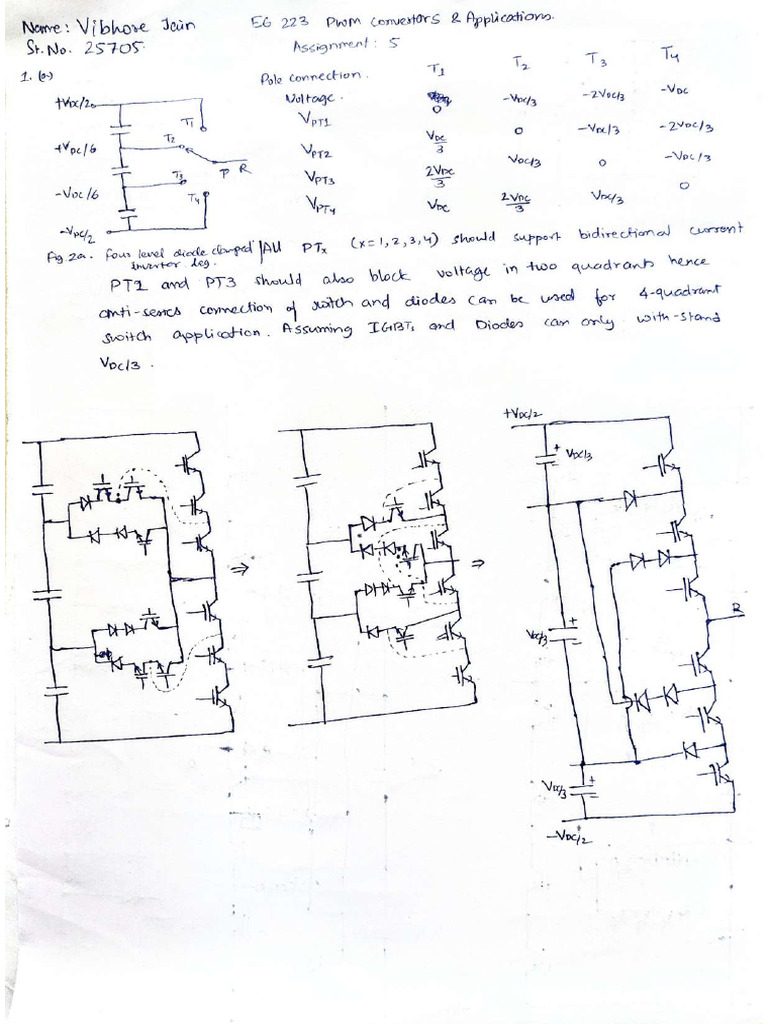 Name: Vibhore Jain
EG 223 PWM Convertors & Applications.
Sr.No. 25705.
Assignment: 5
1. (a)
Pole connection. T1 T2 T3 T4
Voltage.
VPT1 0 -VDC/3 -2VDC/3 -VDC
VPT2 VDC/3 0 -VDC/3 -2VDC/3
VPT3 2VDC/3 VDC/3 0 -VDC/3
VPT4 VDC 2VDC/3 VDC/3 0
+VDC/2
T1
T2
+VDC/6
P R
T3
-VDC/6
T4
-VDC/2
Fig.2a. Four level diode clamped
inverter leg.
All PTx (x=1,2,3,4) should support bidirectional current
PT2 and PT3 should also block voltage in two quadrants hence
anti-series connection of switch and diodes can be used for 4-quadrant
switch application. Assuming IGBTs and Diodes can only with-stand
VDC/3.
⇒
⇒
+VDC/2
+ VDC/3
-
R
VDC/3 +
-
VDC/3 +
-
-VDC/2